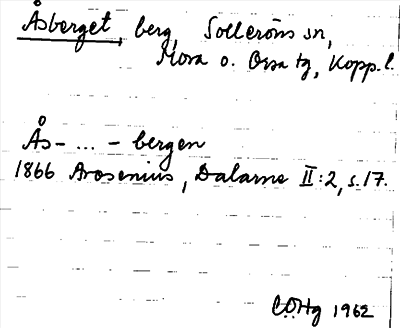 Åsberget, berg, Solleröns sn,
Mora o. Orsa tg, Kopp. l.
Ås- ... - bergen
1866 Arosenius, Dalarne II:2, s. 17.
CÖHg 1962